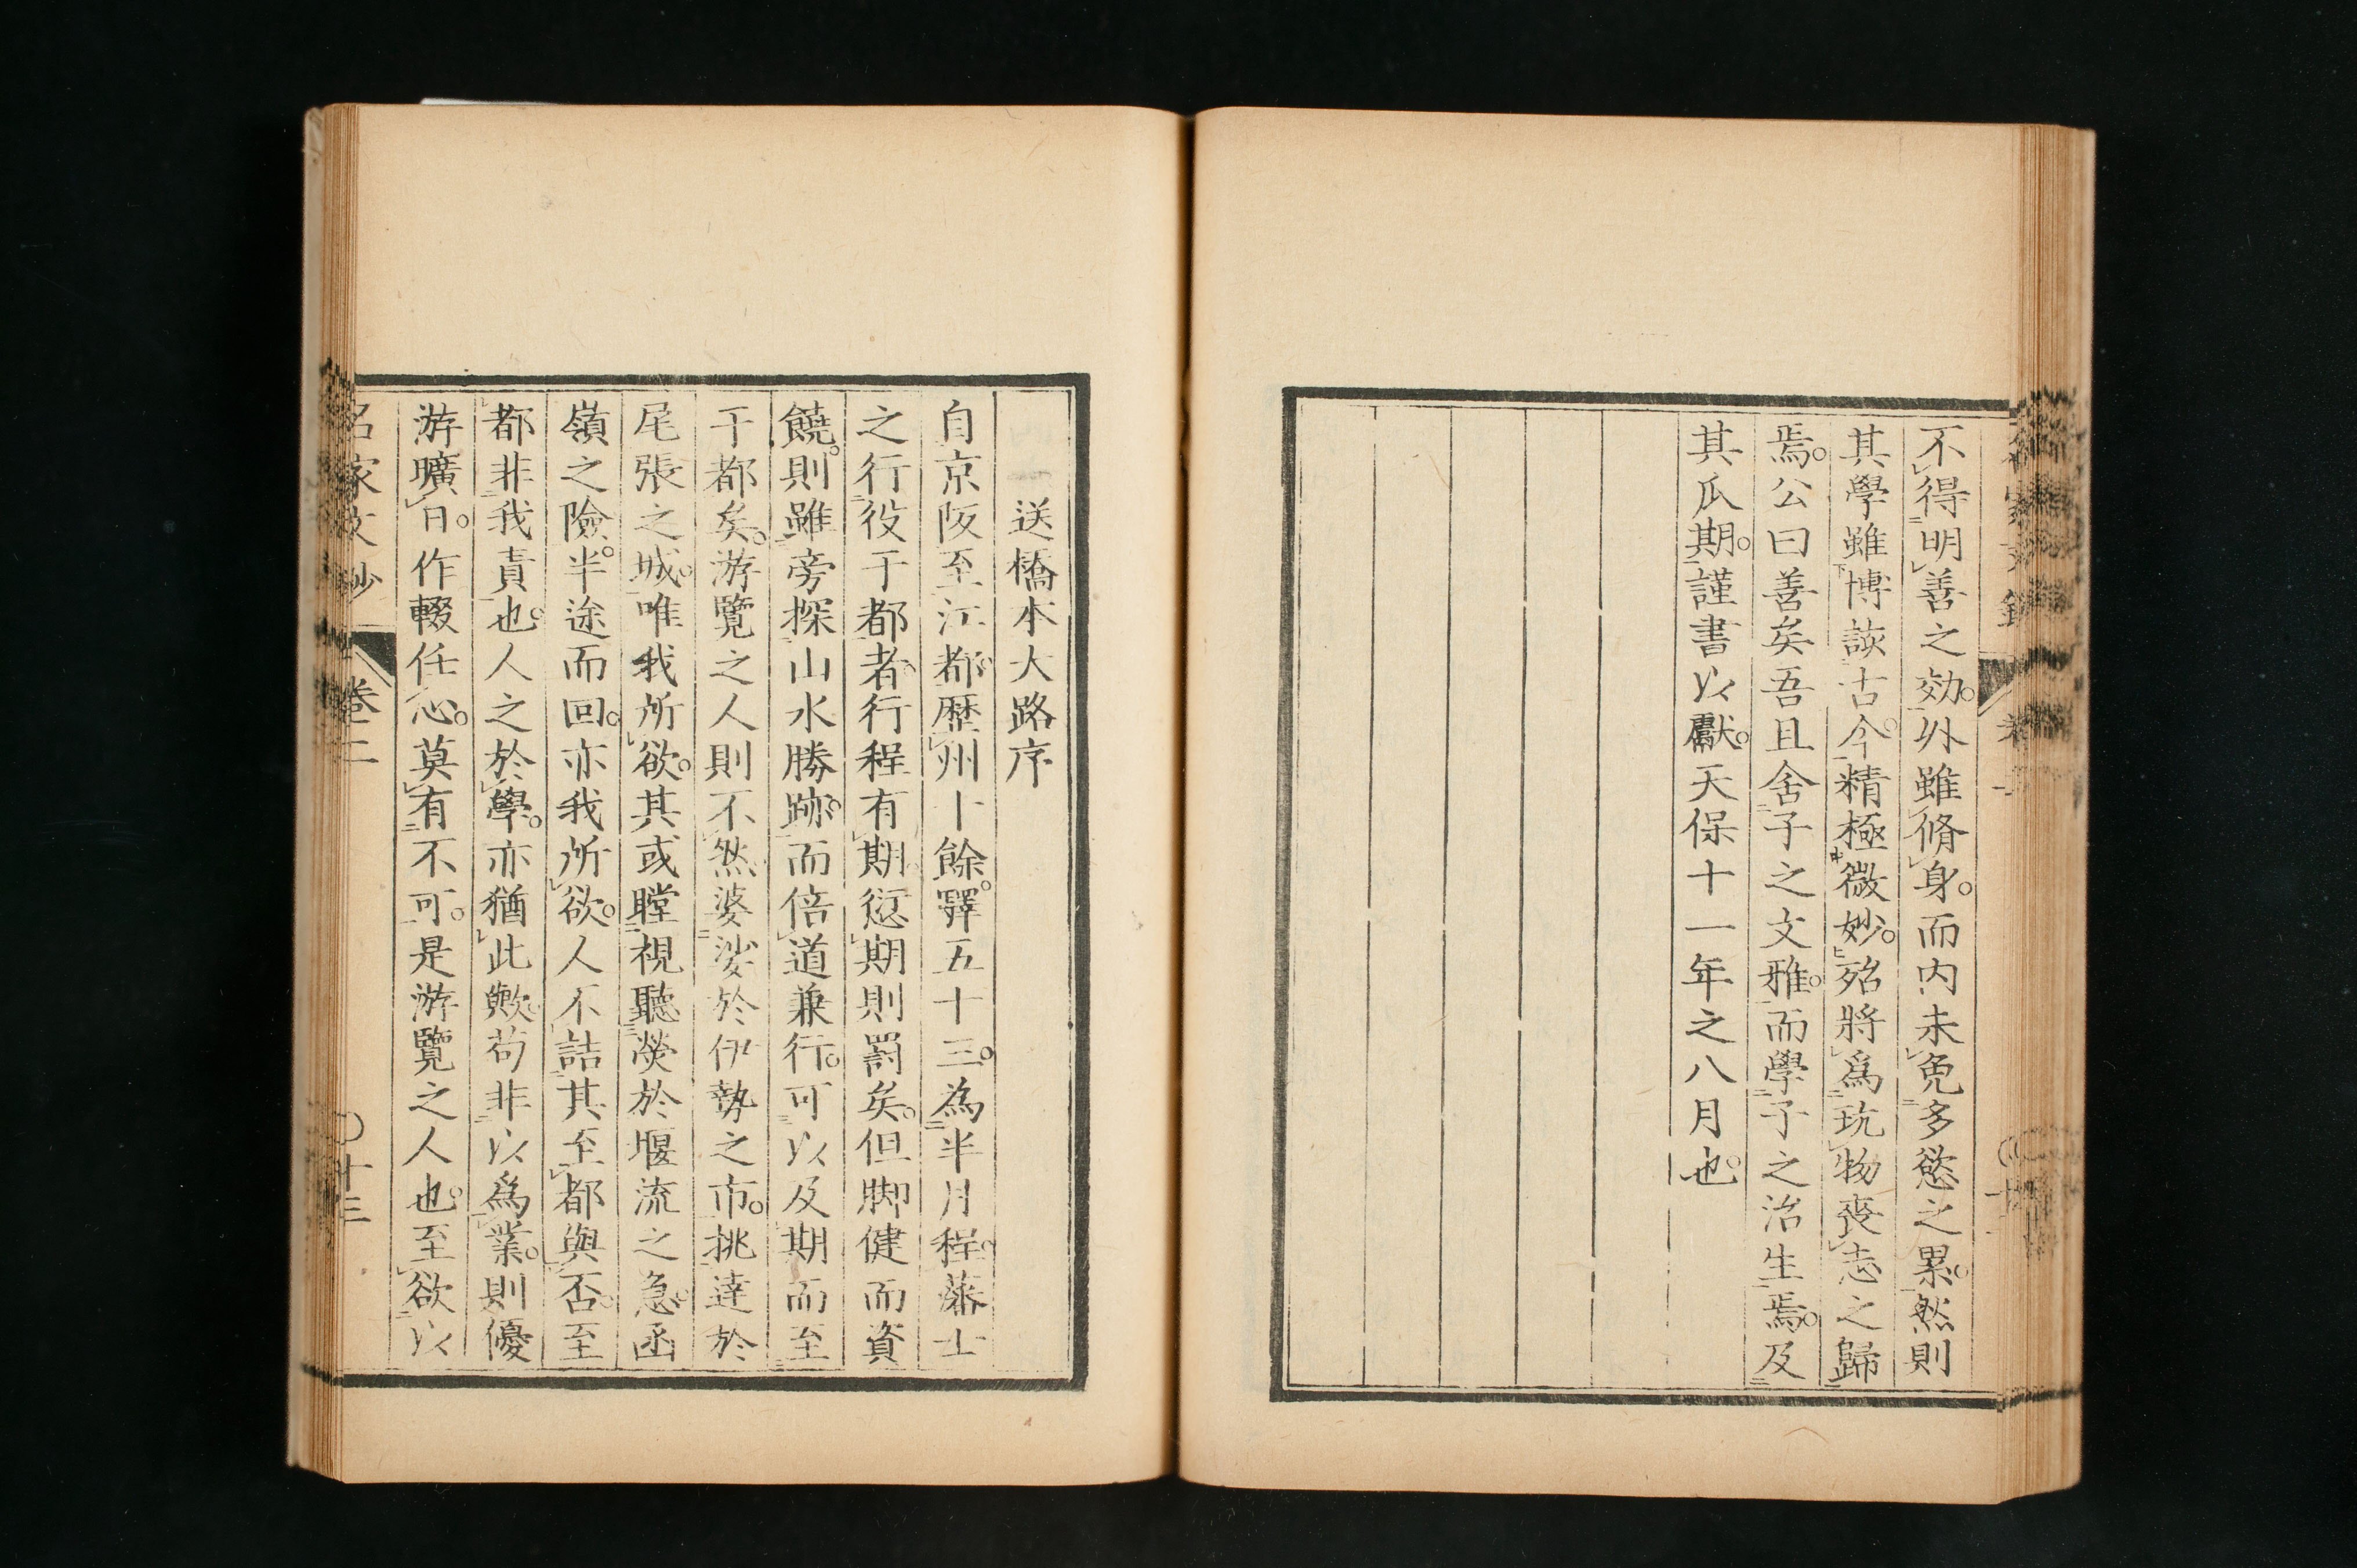 不得明善之効。外雖脩身。而内未免多慾之累。然則
其學雖博談古今。精極微妙。殆將爲玩物喪志之歸
焉。公曰善矣吾且舍子之文雅。而學子之治生焉。及
其瓜期。謹書以獻。天保十一年之八月也。
送橋本大路序
自京阪至江都。歴州十餘。驛五十三。為半月程。藩士
之行役于都者。行程有期。愆期則罰矣。但脚健而資
饒。則雖旁探山水勝跡。而倍道兼行。可以及期而至
于都矣。游覽之人則不然。婆娑於伊勢之市。挑達於
尾張之城。唯我所欲。其或瞠視聽熒於堰流之急。函
嶺之險。半途而回。亦我所欲。人不詰其至都與否。至
都非我責也。人之於學。亦猶此歟。苟非以爲業。則優
游曠日。作輟任心。莫有不可。是游覽之人也。至欲以
名家文抄 卷二 〇十三